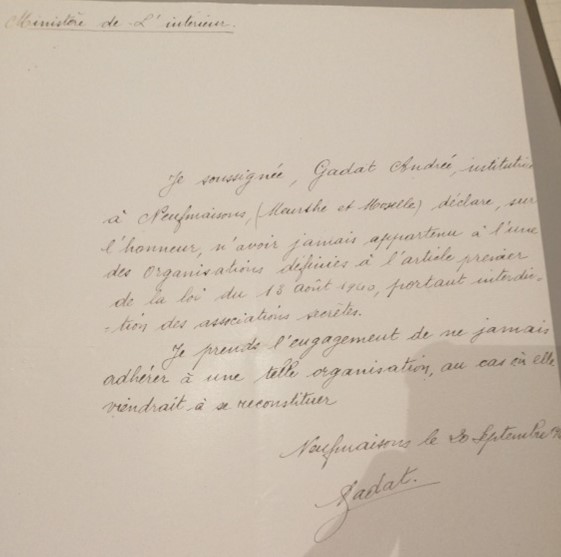 Ministère de L'intérieur.
Je soussignée, Gadat Andrée, institutrice
à Neufmaisons, (Meurthe et Moselle) déclare, sur
l'honneur, n'avoir jamais appartenu à l'une
des Organisations définies à l'article premier
de la loi du 13 août 1940, portant interdic-
-tion des associations secrètes.
Je prends l'engagement de ne jamais
adhérer à une telle organisation, au cas où elle
viendrait à se reconstituer
Neufmaisons le 20 Septembre
Gadat.